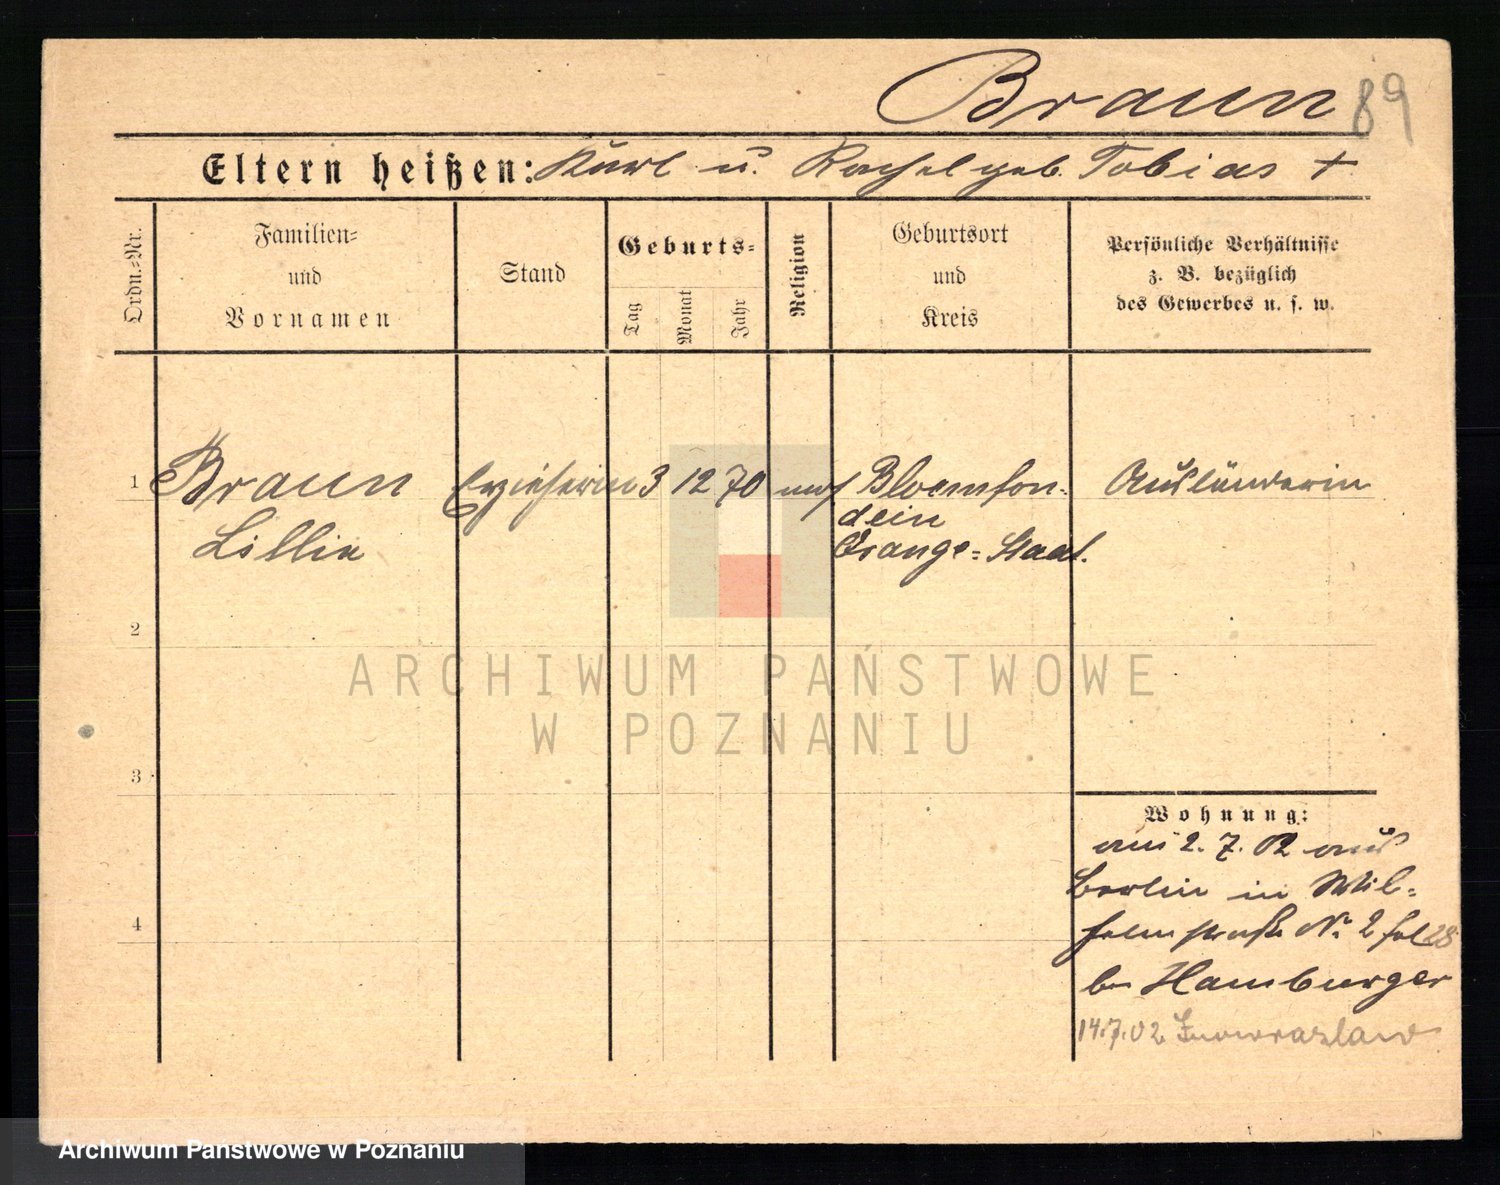 Braun 89
Eltern heißen: Karl u. Rachel geb. Tobias +
Ordn.-Nr.
Familien-
und
Vornamen
Stand
Geburts-
Tag
Monat
Jahr
Religion
Geburtsort
und
Kreis
Persönliche Verhältnisse
z. B. bezüglich
des Gewerbes u. s. w.
1 Braun Erzieherin 3 12 70 mos Bloemfon- Ausländerin
dein
Lillie Orange-Staat.
2
3
4
Wohnung:
am 2. 7. 02 aus
Berlin in Wil-
helmstraße No 2 fol 28
bei Hamburger
14.7.02 Inowrazlaw
ARCHIWUM PAŃSTWOWE
W POZNANIU
Archiwum Państwowe w Poznaniu